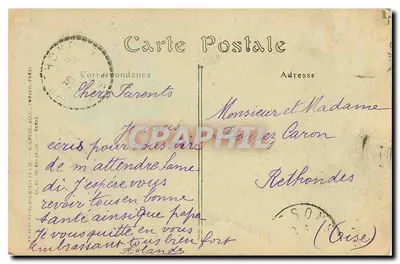 Carte Postale
Correspondance
Adresse
Chers Parents
Je vous
écris pour vous dire
de m'attendre same
di. J'espère vous
revoir tous en bonne
santé ainsi que papa
Je vous quitte en vous
embrassant tous bien fort
Rolande
Monsieur et Madame
Caron
Rethondes
(Oise)
CPAPHIL